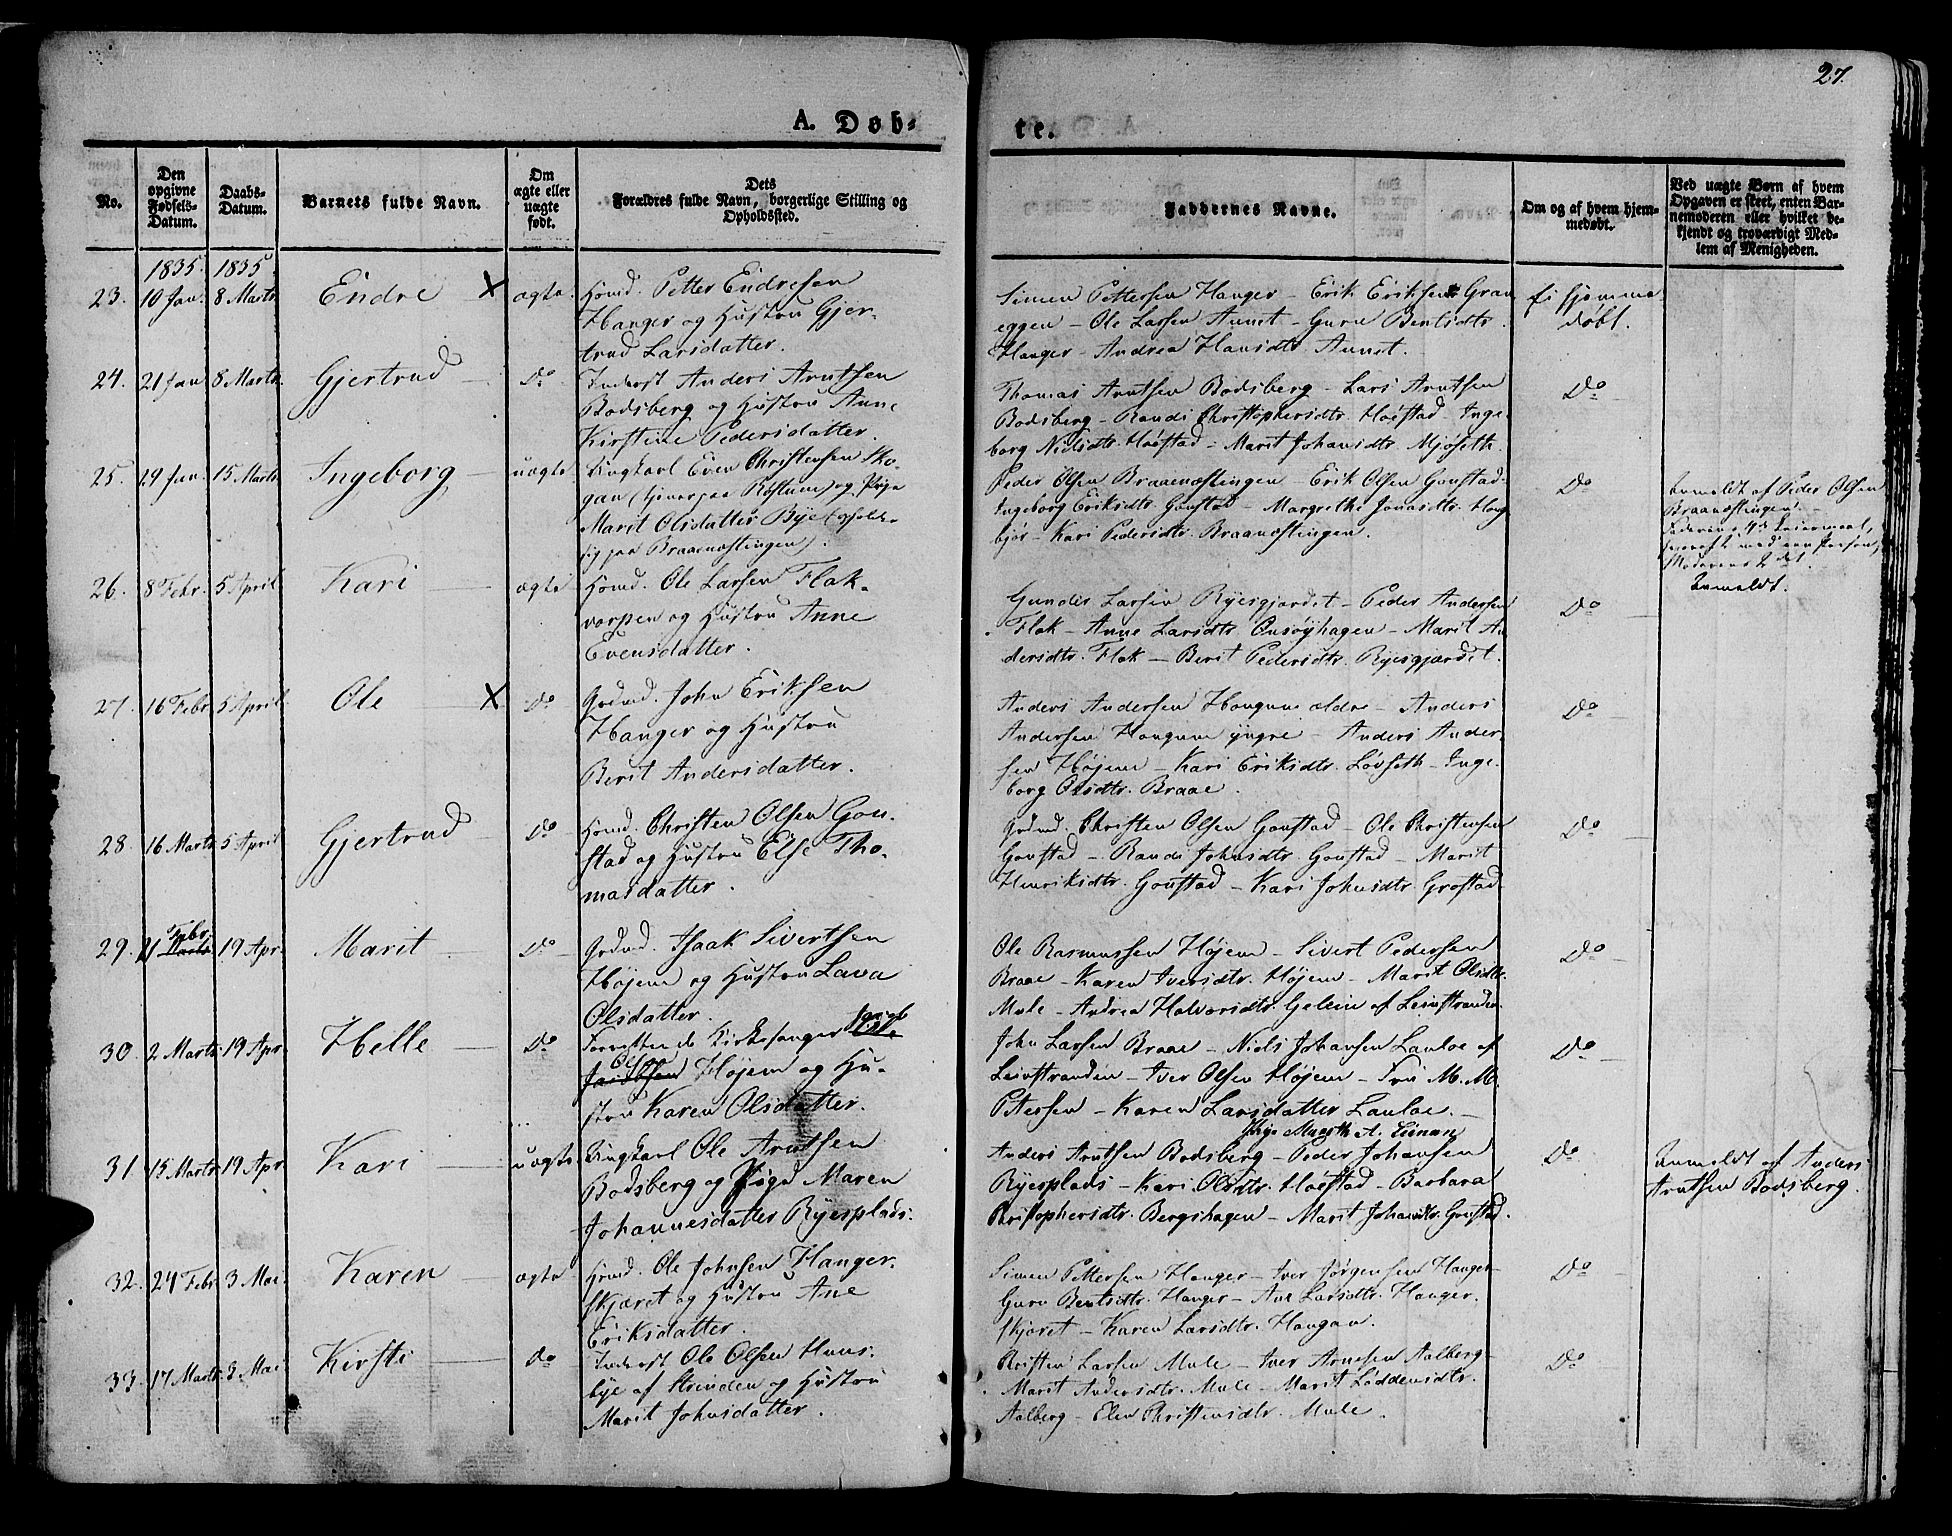 27.
A. Døb-
te.
No.
Den opgivne Fødsels-Datum.
Daabs-Datum.
Barnets fulde Navn.
Om ægte eller uægte født.
Dets Forældres fulde Navn, borgerlige Stilling og Opholdssted.
Faddernes Navne.
Om og af hvem hjem-medøbt.
Ved uægte Børn af hvem Opgaven er skeet, enten Bar-nemoderen eller hvilket be-kjendt og troværdigt Med-lem af Menigheden.
1835. 1835.
23. 10 Jan. 8 Marts Endre X ægte. Huusmd. Petter Endresen
Hanger og Hustru Gjer-
trud Larsdatter.
Simen Pettersen Hanger - Erik Eriksen Gran
eggen - Ole Larsen Aunet - Guru Bentsdtr.
Hanger - Andrea Hansdtr. Aunet.
ei hjemme
døbt.
24. 21 Jan 8 Marts. Gjertrud Do Inderst Anders Arntsen
Bodsberg og Hustru Anne
Kirstine Pedersdatter.
Thomas Arntsen Bodsberg - Lars Arntsen
Bodsberg - Randi Christophersdtr. Hoëstad - Inge-
borg Nielsdtr. Hoëstad - Marit Johansdtr. Mjøseth.
Do
25. 29 Jan. 15 Marts Ingeborg uægte Ungkarl Even Christensen Sko-
gan ( paa Røstum) og Pige
Marit Olsdatter Bye (opholder
sig paa Braaenæstingen).
Peder Olsen Braaenæstingen - Erik Olsen Goustad
Ingeborg Eriksdtr. Goustad - Margrethe Jonasdtr. Haug
bjør - Kari Pedersdtr. Braaenæstingen.
Do
Anmeldt af Peder Olsen
Braanæstingen.
Faderens 4de Leiermaal,
med een Person,
Moderens 2det.
26. 8 Febr. 5 April Kari ægte Huusmd. Ole Larsen Flak-
vorpen og Hustru Anne
Evensdatter.
Gunder Larsen Ryesgjerdet - Peder Andersen
Flak - Anne Larsdtr. Onsøyhagen - Marit An-
dersdtr. Flak - Berit Pedersdtr. Ryesgjærdet.
Do
Anmeldt.
27. 16 Febr. 5 April Ole X Do Grdmd. John Eriksen
Hanger og Hustru
Berit Andersdatter.
Anders Andersen Haugum ældre - Anders
Andersen Haugum yngre - Anders Ander-
sen Højem - Kari Eriksdtr. Løvseth - Inge-
borg Olsdtr. Braae.
Do
28. 16 Marts 5 April Gjertrud Do Huusmd. Christen Olsen Gou-
stad og Hustru Else Tho-
masdatter.
Grdmd. Christen Olsen Goustad - Ole Christensen
Goustad - Randi Johnsdtr. Goustad - Marit
Henriksdtr. Goustad - Kari Johnsdtr. Grøstad
Do
29. 21 Febr. Marts 19 Apr. Marit Do Grdmd. Isaak Sivertsen
Højem og Hustru Lava
Olsdatter.
Ole Rasmussen Højem - Sivert Pedersen
Braae - Karen Iversdtr. Højem - Marit Olsdtr.
Mule - Andrea Halvorsdtr. Gelein af Leinstranden
Do
30. 2 Marts 19 Apr. Helle Do Forrettende Kirkesanger Jacob Ole
Olsen Jacobsen Højem og Hu-
stru Karen Olsdatter.
John Larsen Braae - Niels Johansen Lauloe af
Leinstranden - Iver Olsen Højem - Fru M. M.
Petersen - Karen Larsdatter Lauloe.
Do
31. 15 Marts 19 Apr. Kari uægte Ungkarl Ole Arntsen
Bodsberg og Pige Maren
Johannesdatter Ryesplads.
Anders Arntsen Bodsberg - Peder Johansen
Ryesplads - Kari Olsdtr. Hoëstad - Barbara
Christophersdtr. Bergshagen - Marit Johansdtr. Goustad.
Do
Anmeldt af Anders
Arntsen Bodsberg.
32. 24 Febr. 3 Mai. Karen ægte Huusmd. Ole Johnsen Hanger-
skjæret og Hustru Ane
Eriksdatter.
Simen Pettersen Hanger - Iver Jørgensen Hanger -
Guru Bentsdtr. Hanger - Ane Larsdtr. Hanger-
skjæret - Karen Larsdtr. Haugan.
Do
33. 17 Marts. 3 Mai. Kirsti Do Inderst Ole Olsen Huus-
bye af Strinden og Hustru
Marit Johnsdatter.
Christen Larsen Mule - Iver Arnesen Aalberg -
Marit Andersdtr. Mule - Marit Loddensdtr.
Aalberg - Elen Christensdtr. Mule.
Do